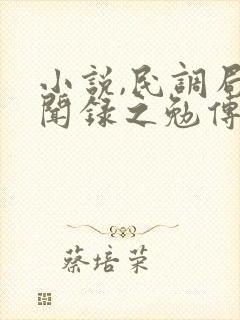 小説,民調局
聞録之勉傳
蔡培荣